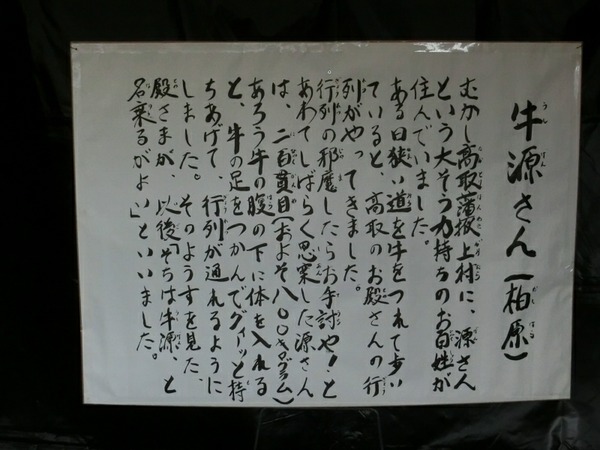 牛源さん(柏原)
むかし高取藩坂上村に、源さん
という大そう力持ちのお百姓が
住んでいました。
ある日狭い道を牛をつれて歩い
ていると、高取のお殿さんの行
列がやってきました。
行列の邪魔したらお手討や!と
あわてしばらく思案した源さん
は、二百貫目(およそ八〇〇キログラム)も
あろう牛の腹の下に体を入れる
と、牛の足をつかんでグィーッと持
ちあげて、行列が通れるように
しました。そのようすを見た、
殿さまが、「以後そちは牛源、と
名乗るがよい」といいました。